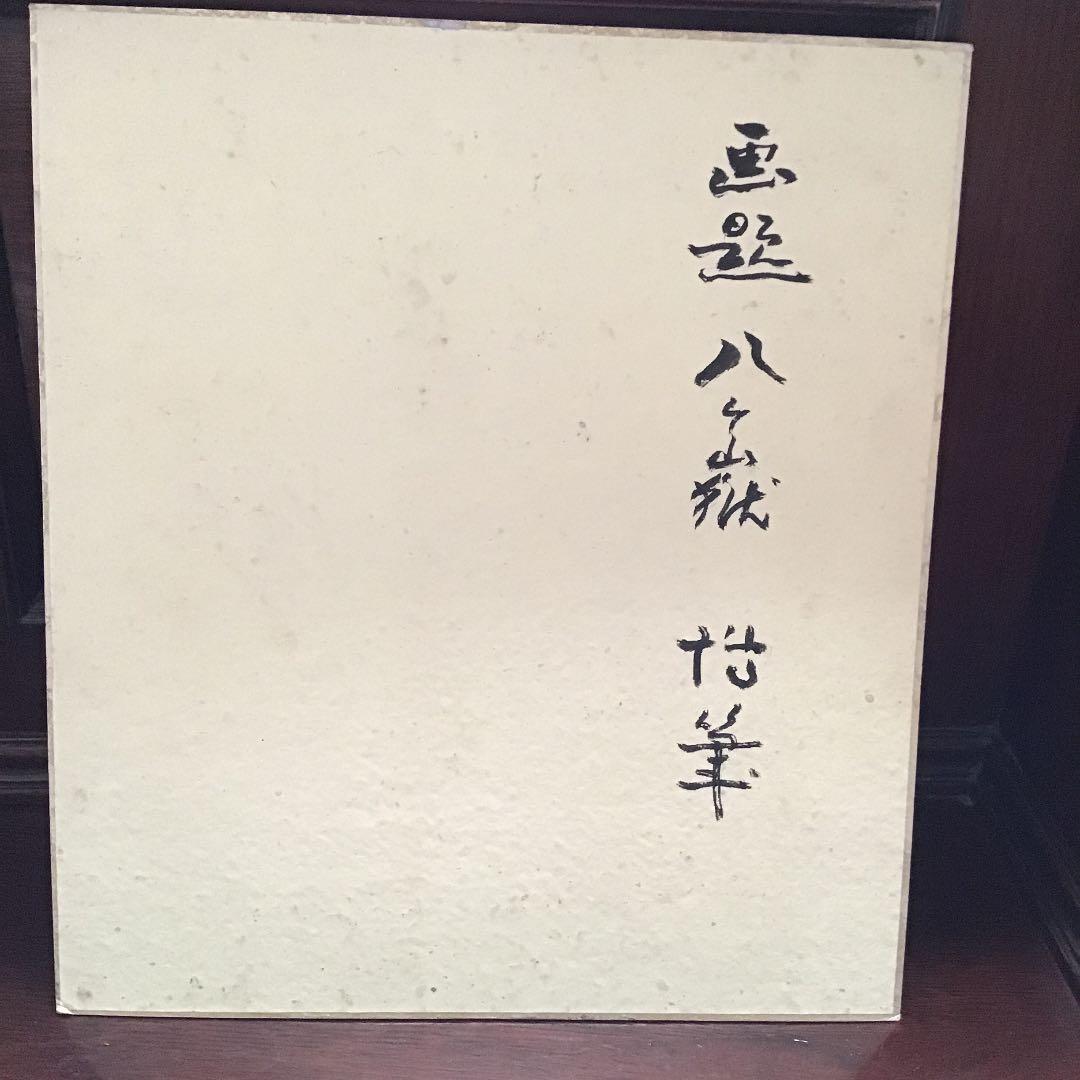 画題 八ヶ嶽 筆